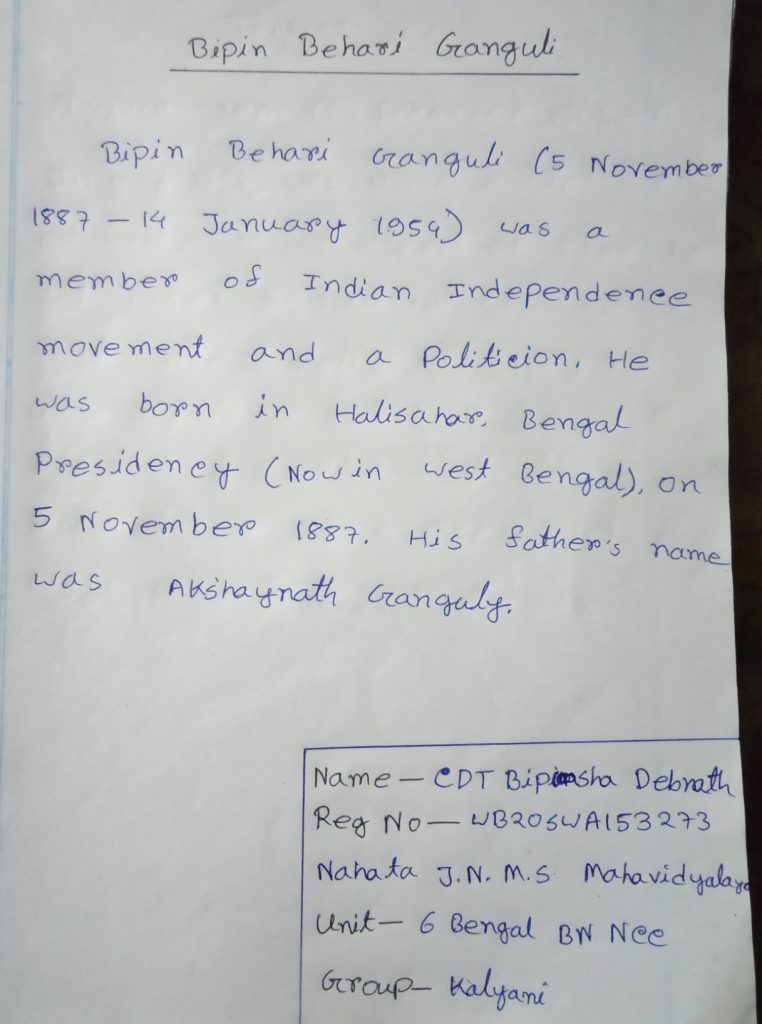 Bipin Behari Ganguli
Bipin Behari Ganguli (5 November
1887 – 14 January 1954) was a
member of Indian Independence
movement and a Politicion. He
was born in Halisahar, Bengal
Presidency (Now in west Bengal), on
5 November 1887. His father's name
was Akshaynath Ganguly.
Name – CDT Bipasha Debnath
Reg No – WB20SWA153273
Nahata J.N.M.S Mahavidyalaya
Unit – 6 Bengal BN NCC
Group – Kalyani